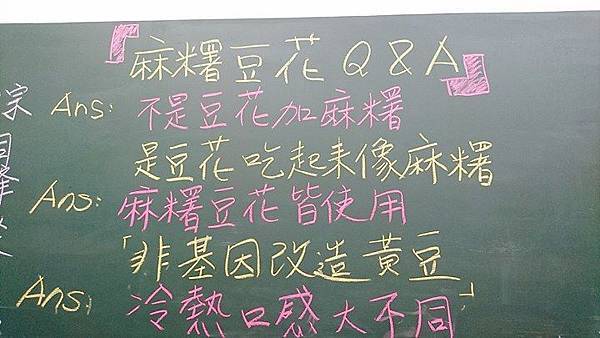 『麻糬豆花Q&A』
Ans: 不是豆花加麻糬
是豆花吃起来像麻糬
Ans: 麻糬豆花皆使用
「非基因改造黃豆」
Ans: 冷熱口感大不同